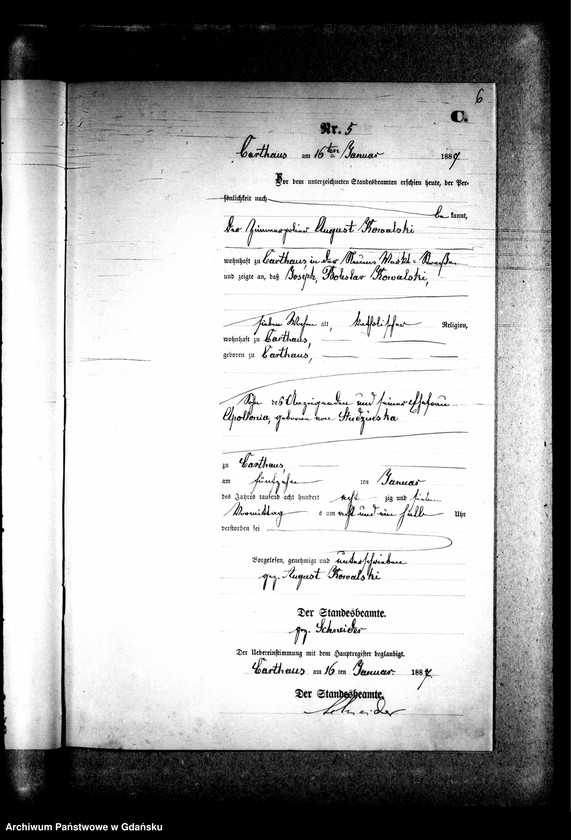 6
C.
Nr. 5
Carthaus am 16ten Januar 1887
Vor dem unterzeichneten Standesbeamten erschien heute, der Per-
sönlichkeit nach
be kannt,
der Zimmerpolier August Kowalski
wohnhaft zu Carthaus in der Neuen Markt-Straße
und zeigte an, daß Joseph, Boleslav Kowalski,
sieben Wochen alt, katholischer Religion,
wohnhaft zu Carthaus,
geboren zu Carthaus,
Sohn des Anzeigenden und seiner Ehefrau
Apollonia, geboren von Studzinska
zu Carthaus,
am fünfzehn ten Januar
des Jahres tausend acht hundert acht zig und sieben
Vormittag s um acht und ein halb Uhr
verstorben sei
Vorgelesen, genehmigt und unterschrieben
gez. August Kowalski
Der Standesbeamte.
gez. Schneider
Der Uebereinstimmung mit dem Hauptregister beglaubigt.
Carthaus am 16 ten Januar 1887
Der Standesbeamte.
Schneider
Archiwum Państwowe w Gdańsku